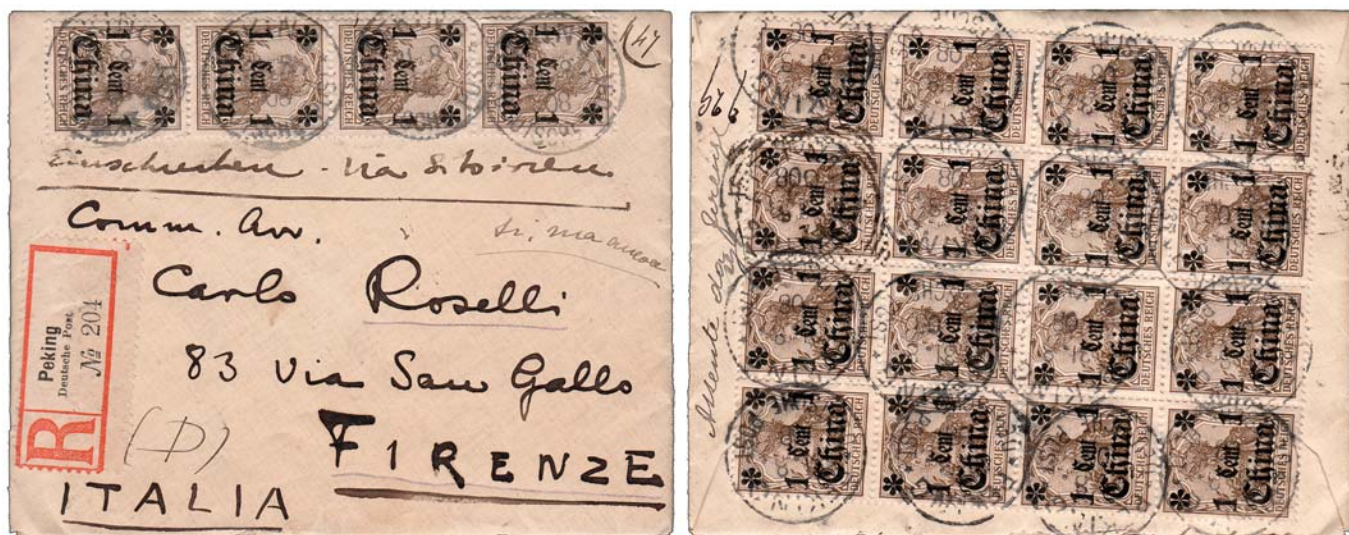 1 Cent 1
China
DEUTSCHES REICH
1 Cent 1
China
DEUTSCHES REICH
1 Cent 1
China
DEUTSCHES REICH
1 Cent 1
China
DEUTSCHES REICH
Einschreiben - via Sibirien
Comm. Avv.
Carlo Roselli
83 Via San Gallo
FIRENZE
ITALIA
(D)
R
Peking
Deutsche Post.
№ 204
1 Cent 1
China
DEUTSCHES REICH
1 Cent 1
China
DEUTSCHES REICH
1 Cent 1
China
DEUTSCHES REICH
1 Cent 1
China
DEUTSCHES REICH
1 Cent 1
China
DEUTSCHES REICH
1 Cent 1
China
DEUTSCHES REICH
1 Cent 1
China
DEUTSCHES REICH
1 Cent 1
China
DEUTSCHES REICH
1 Cent 1
China
DEUTSCHES REICH
1 Cent 1
China
DEUTSCHES REICH
1 Cent 1
China
DEUTSCHES REICH
1 Cent 1
China
DEUTSCHES REICH
1 Cent 1
China
DEUTSCHES REICH
1 Cent 1
China
DEUTSCHES REICH
1 Cent 1
China
DEUTSCHES REICH
1 Cent 1
China
DEUTSCHES REICH